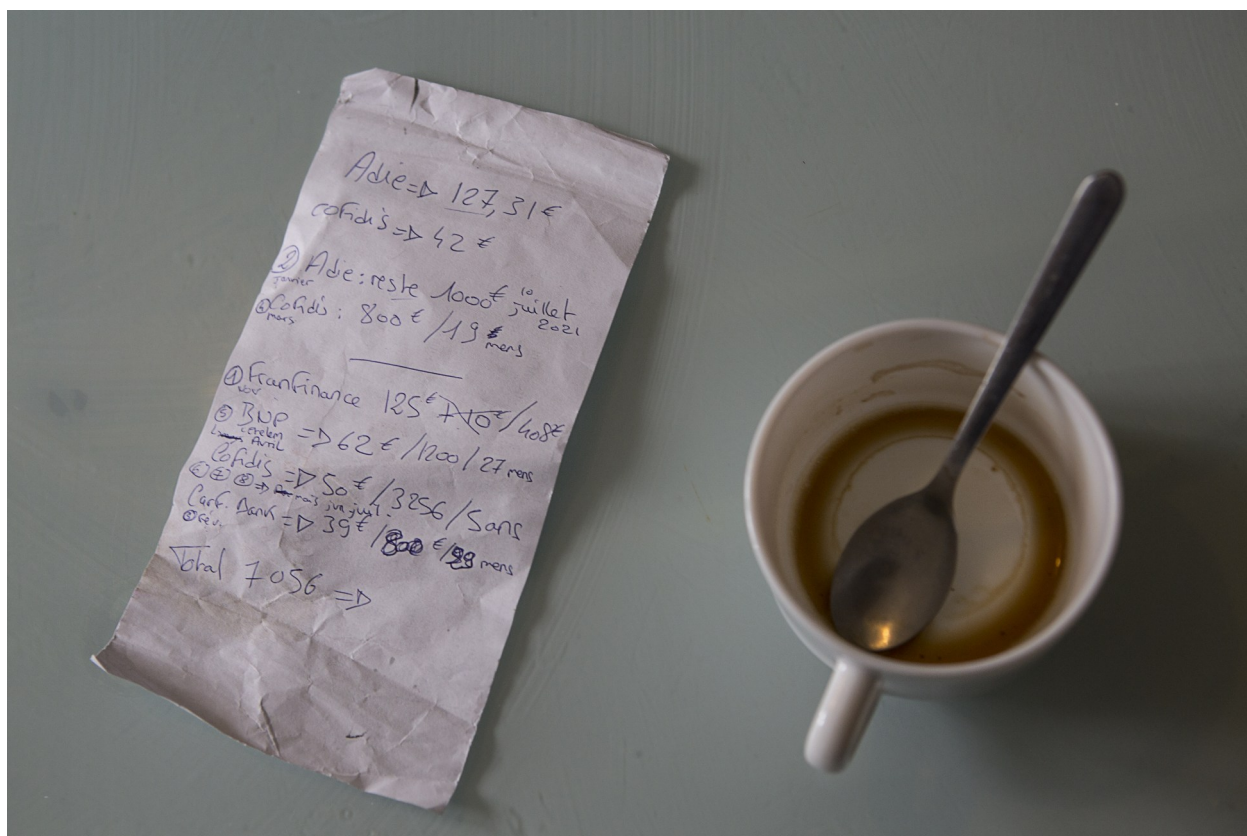 Adie => 127,31 €
cofidis => 42 €
② Adie : reste 1000 € 10 juillet 2021
janvier
④ Cofidis : 800 € / 19 mens
mars
① FranFinance 125 € / 408 €
nov
⑤ BNP => 62 € / 1200 / 27 mens
cetelem
Avril
Cofidis => 50 € / 3256 / 5ans
⑥ ⑦ ⑧ => mais juin juil.
Carf. Bank => 39 € / 800 € / mens
fév.
Total 7056 =>